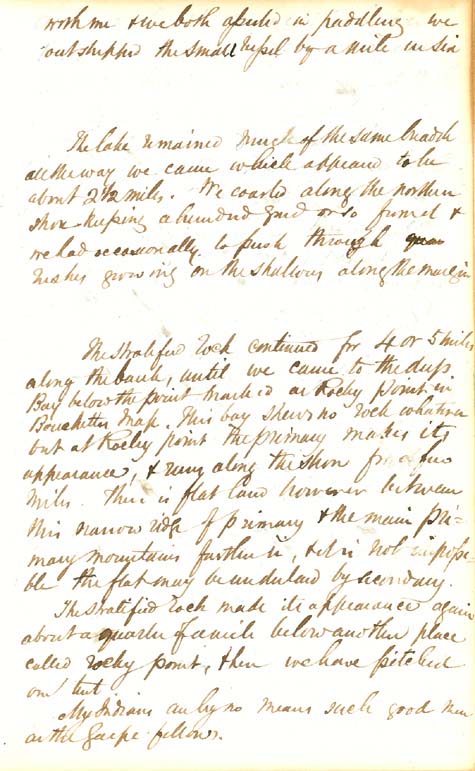 with me & we both assisted in paddling we
outstripped the small vessel by a mile in six
The lake remained much of the same breadth
all the way we came which appeared to be
about 2½ miles. We coasted along the northern
shore keeping a hundred yards or so from it &
we had occasionally to push through
rushes growing on the shallows along the margin
The stratified rock continued for 4 or 5 miles
along the bank, until we came to the deep
Bay below the point marked as Rocky Point in
Bouchettes Map. This bay shews no rock whatever
but at Rocky point the primary makes its
appearance, & runs along the shore for a few
miles. There is flat land however between
this narrow ridge of primary & the main pri-
mary mountains farther in, & it is not impossi-
ble the flat may be underlaid by secondary.
The stratified rock made its appearance again
about a quarter of a mile below another place
called rocky point, & there we have pitched
our tent.
My Indians are by no means such good men
as the Gaspé fellows.